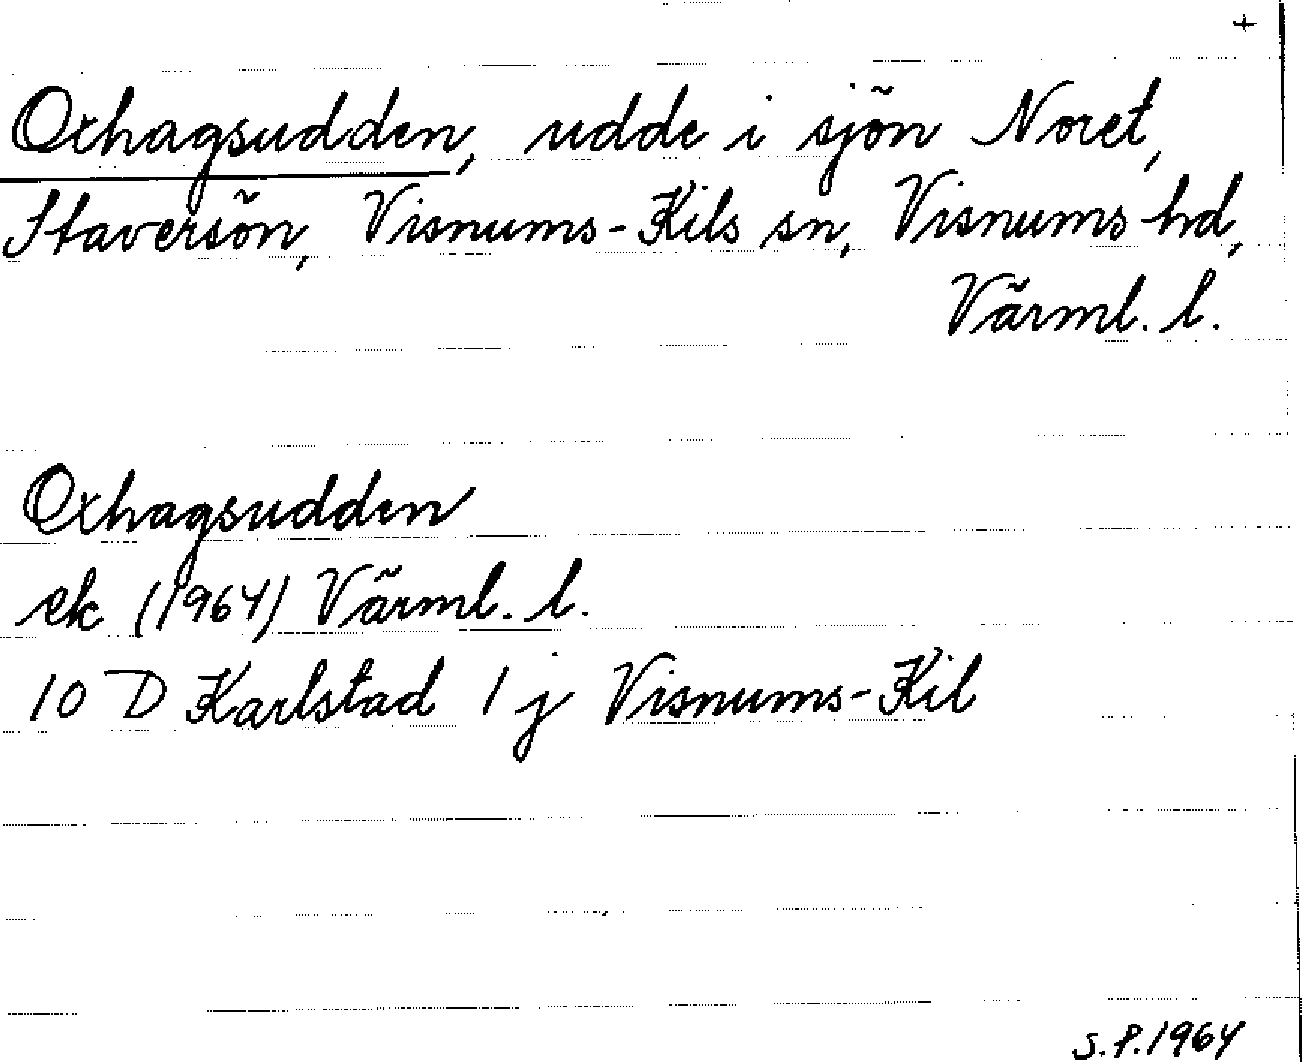 +
Oxhagsudden, udde i sjön Noret,
Staversön, Visnums-Kils sn, Visnums hd,
Värml. l.
Oxhagsudden
ek (1964) Värml. l.
10 D Karlstad 1 j Visnums-Kil
S.P. 1964